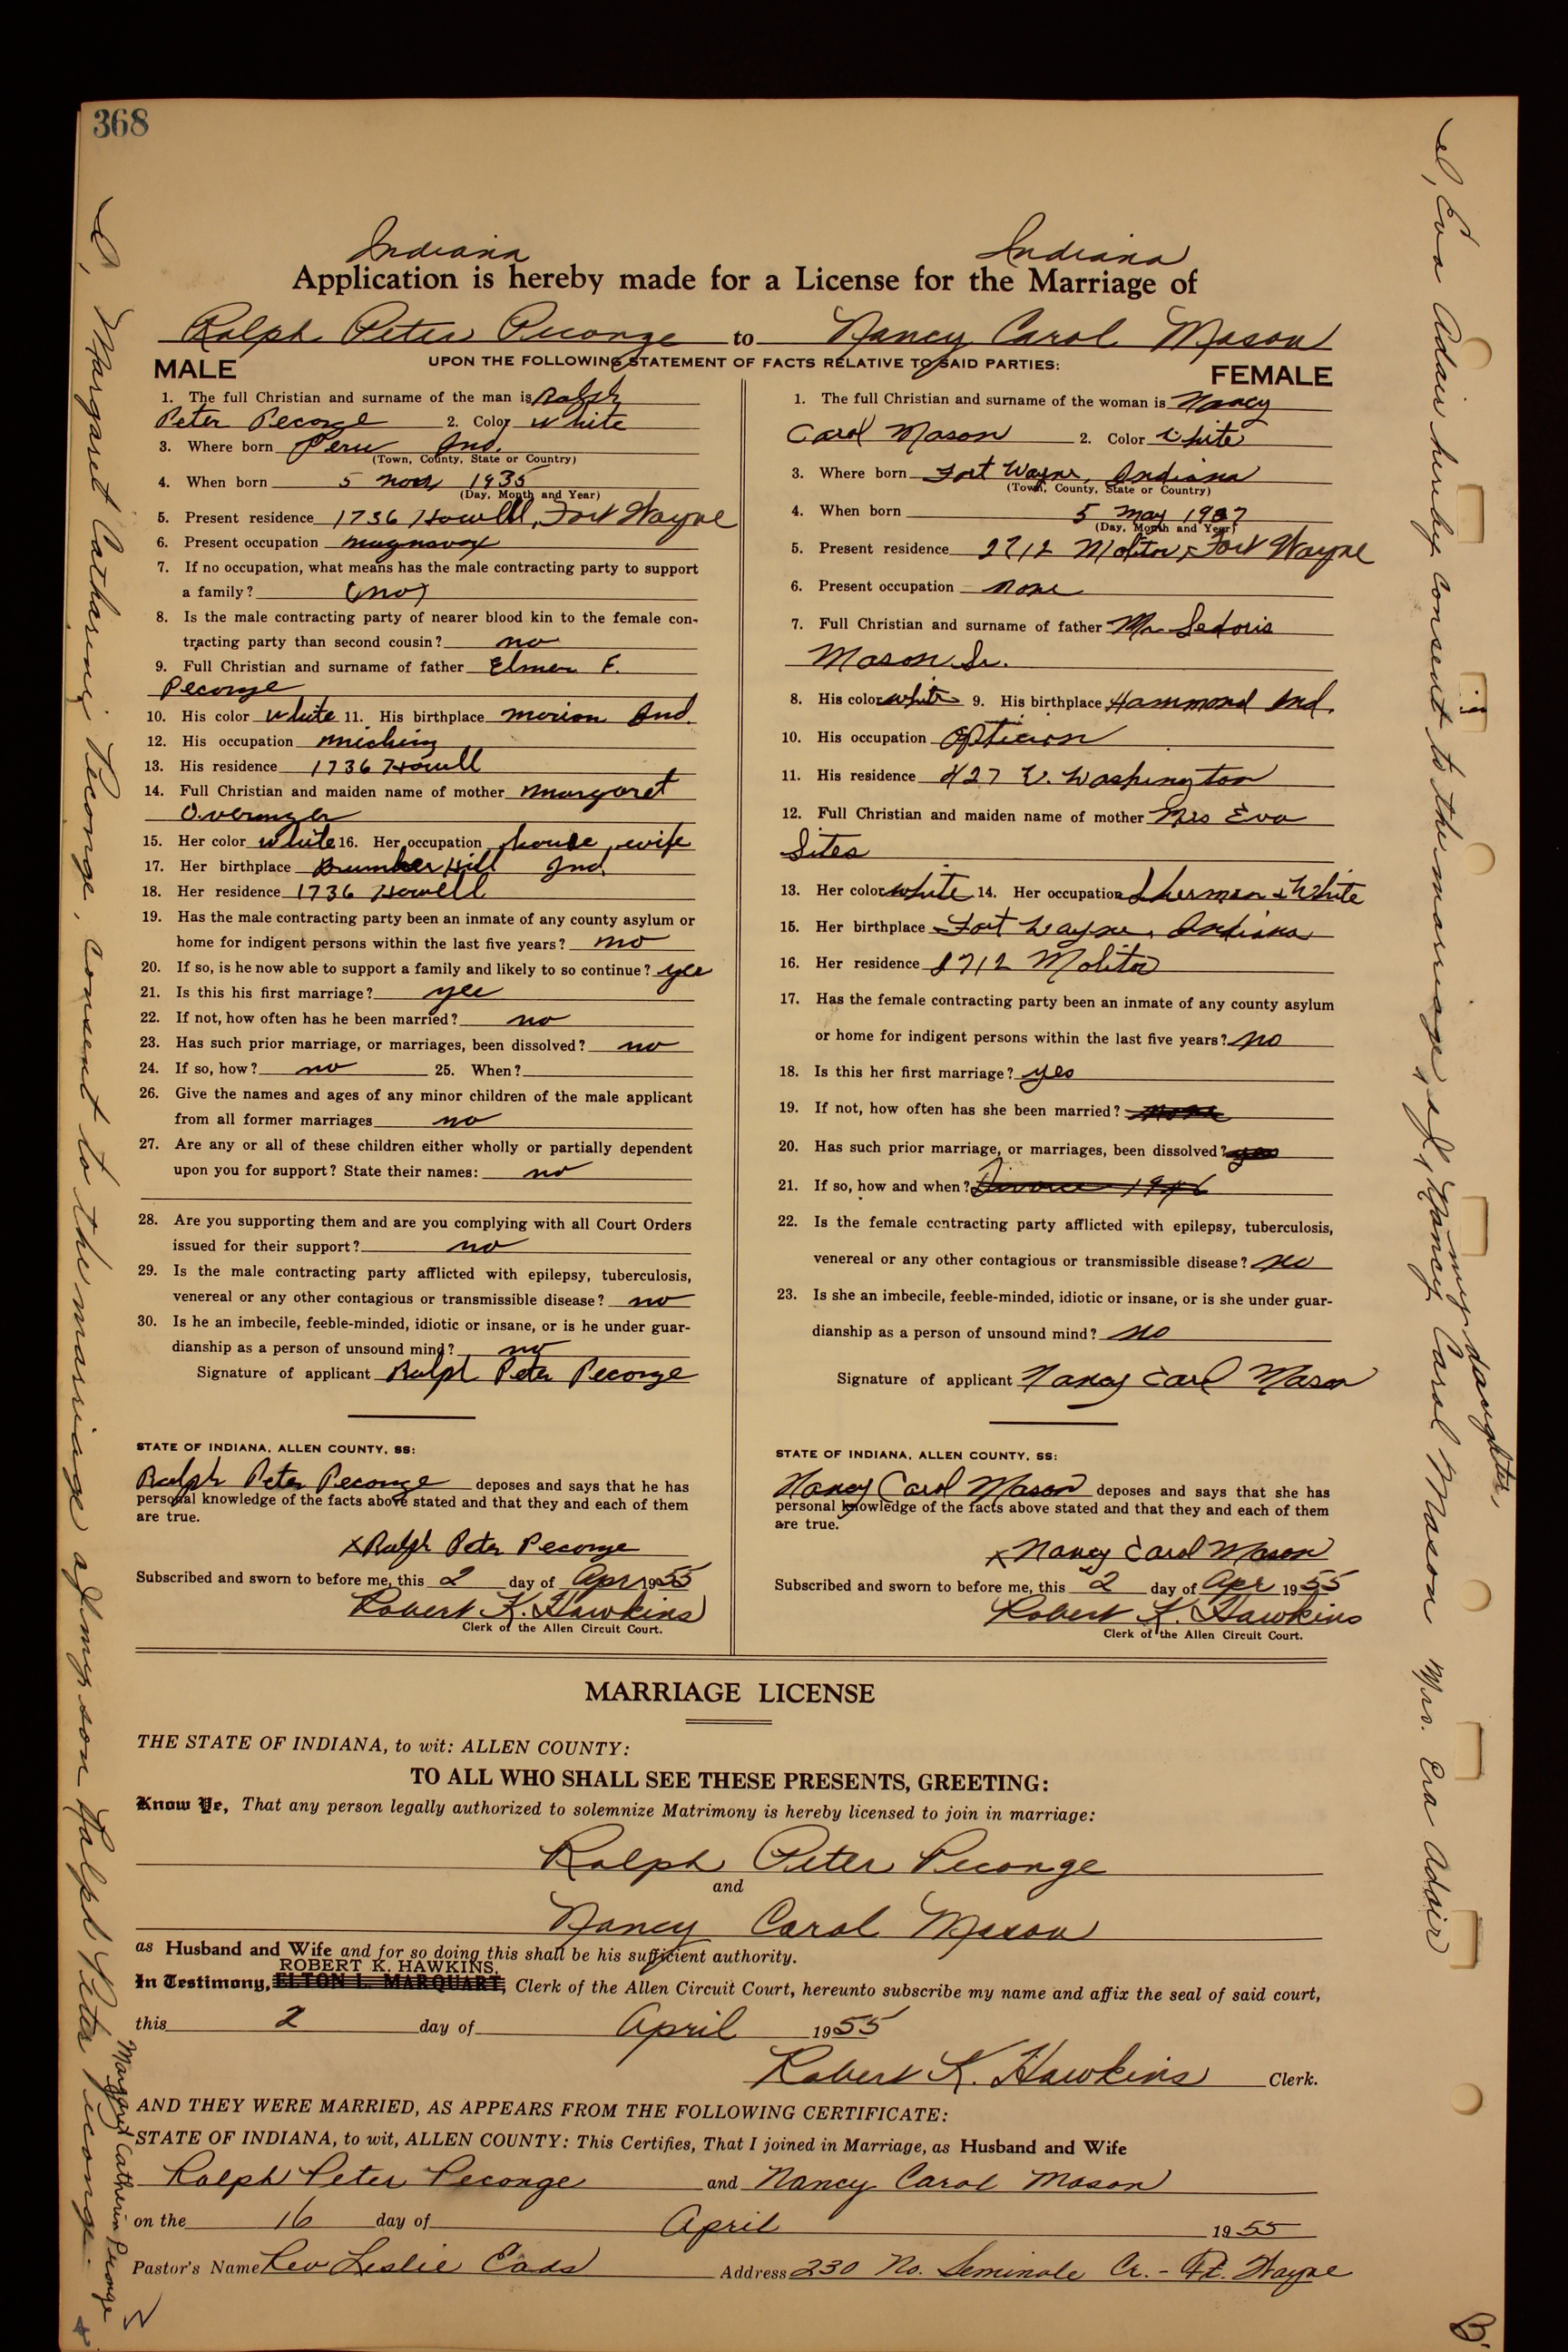 368
Indiana Indiana
Application is hereby made for a License for the Marriage of
Ralph Peter Peconge to Nancy Carol Mason
UPON THE FOLLOWING STATEMENT OF FACTS RELATIVE TO SAID PARTIES:
MALE
1. The full Christian and surname of the man is Ralph
Peter Peconge 2. Color white
3. Where born Peru Ind.
(Town, County, State or Country)
4. When born 5 1935
(Day, Month and Year)
5. Present residence 1736 Howell, Fort Wayne
6. Present occupation magnavox
7. If no occupation, what means has the male contracting party to support
a family? (no)
8. Is the male contracting party of nearer blood kin to the female con-
tracting party than second cousin? no
9. Full Christian and surname of father Elmer F.
Peconge
10. His color white 11. His birthplace marion Ind.
12. His occupation
13. His residence 1736 Howell
14. Full Christian and maiden name of mother margaret
15. Her color white 16. Her occupation house wife
17. Her birthplace Hill Ind.
18. Her residence 1736 Howell
19. Has the male contracting party been an inmate of any county asylum or
home for indigent persons within the last five years? no
20. If so, is he now able to support a family and likely to so continue? yes
21. Is this his first marriage? yes
22. If not, how often has he been married? no
23. Has such prior marriage, or marriages, been dissolved? no
24. If so, how? no 25. When?
26. Give the names and ages of any minor children of the male applicant
from all former marriages no
27. Are any or all of these children either wholly or partially dependent
upon you for support? State their names: no
28. Are you supporting them and are you complying with all Court Orders
issued for their support? no
29. Is the male contracting party afflicted with epilepsy, tuberculosis,
venereal or any other contagious or transmissible disease? no
30. Is he an imbecile, feeble-minded, idiotic or insane, or is he under guar-
dianship as a person of unsound mind? no
Signature of applicant Ralph Peter Peconge
STATE OF INDIANA, ALLEN COUNTY, SS:
Ralph Peter Peconge deposes and says that he has
personal knowledge of the facts above stated and that they and each of them
are true.
x Ralph Peter Peconge
Subscribed and sworn to before me, this 2 day of Apr 1955
Robert K. Hawkins
Clerk of the Allen Circuit Court.
FEMALE
1. The full Christian and surname of the woman is Nancy
Carol Mason 2. Color White
3. Where born Fort Wayne, Indiana
(Town, County, State or Country)
4. When born 5 May 1937
(Day, Month and Year)
5. Present residence 2712 Molitor, Fort Wayne
6. Present occupation none
7. Full Christian and surname of father Mr Sedoris
Mason Sr.
8. His color white 9. His birthplace Hammond Ind.
10. His occupation Optician
11. His residence 427 W. Washington
12. Full Christian and maiden name of mother Mrs Eva
Sites
13. Her color white 14. Her occupation Sherman & White
15. Her birthplace Fort Wayne, Indiana
16. Her residence 2712 Molitor
17. Has the female contracting party been an inmate of any county asylum
or home for indigent persons within the last five years? no
18. Is this her first marriage? yes
19. If not, how often has she been married? none
20. Has such prior marriage, or marriages, been dissolved? yes
21. If so, how and when? Divorce 1946
22. Is the female contracting party afflicted with epilepsy, tuberculosis,
venereal or any other contagious or transmissible disease? no
23. Is she an imbecile, feeble-minded, idiotic or insane, or is she under guar-
dianship as a person of unsound mind? no
Signature of applicant Nancy Carol Mason
STATE OF INDIANA, ALLEN COUNTY, SS:
Nancy Carol Mason deposes and says that she has
personal knowledge of the facts above stated and that they and each of them
are true.
x Nancy Carol Mason
Subscribed and sworn to before me, this 2 day of Apr 1955
Robert K. Hawkins
Clerk of the Allen Circuit Court.
MARRIAGE LICENSE
THE STATE OF INDIANA, to wit: ALLEN COUNTY:
TO ALL WHO SHALL SEE THESE PRESENTS, GREETING:
Know Ye, That any person legally authorized to solemnize Matrimony is hereby licensed to join in marriage:
Ralph Peter Peconge
and
Nancy Carol Mason
as Husband and Wife and for so doing this shall be his sufficient authority.
ROBERT K. HAWKINS,
In Testimony, ELTON L. MARQUART, Clerk of the Allen Circuit Court, hereunto subscribe my name and affix the seal of said court,
this 2 day of April 1955
Robert K. Hawkins Clerk.
AND THEY WERE MARRIED, AS APPEARS FROM THE FOLLOWING CERTIFICATE:
STATE OF INDIANA, to wit, ALLEN COUNTY: This Certifies, That I joined in Marriage, as Husband and Wife
Ralph Peter Peconge and Nancy Carol Mason
on the 16 day of April 1955
Pastor's Name Rev Leslie Eads Address 230 No. Seminole Cr. - Ft. Wayne
I, Margaret Catharine Peconge, consent to the marriage of my son Ralph Peter Peconge.
Margaret Catherine Peconge
I, Eva Adair hereby consent to the marriage of my daughter, Nancy Carol Mason Mrs. Eva Adair
B.